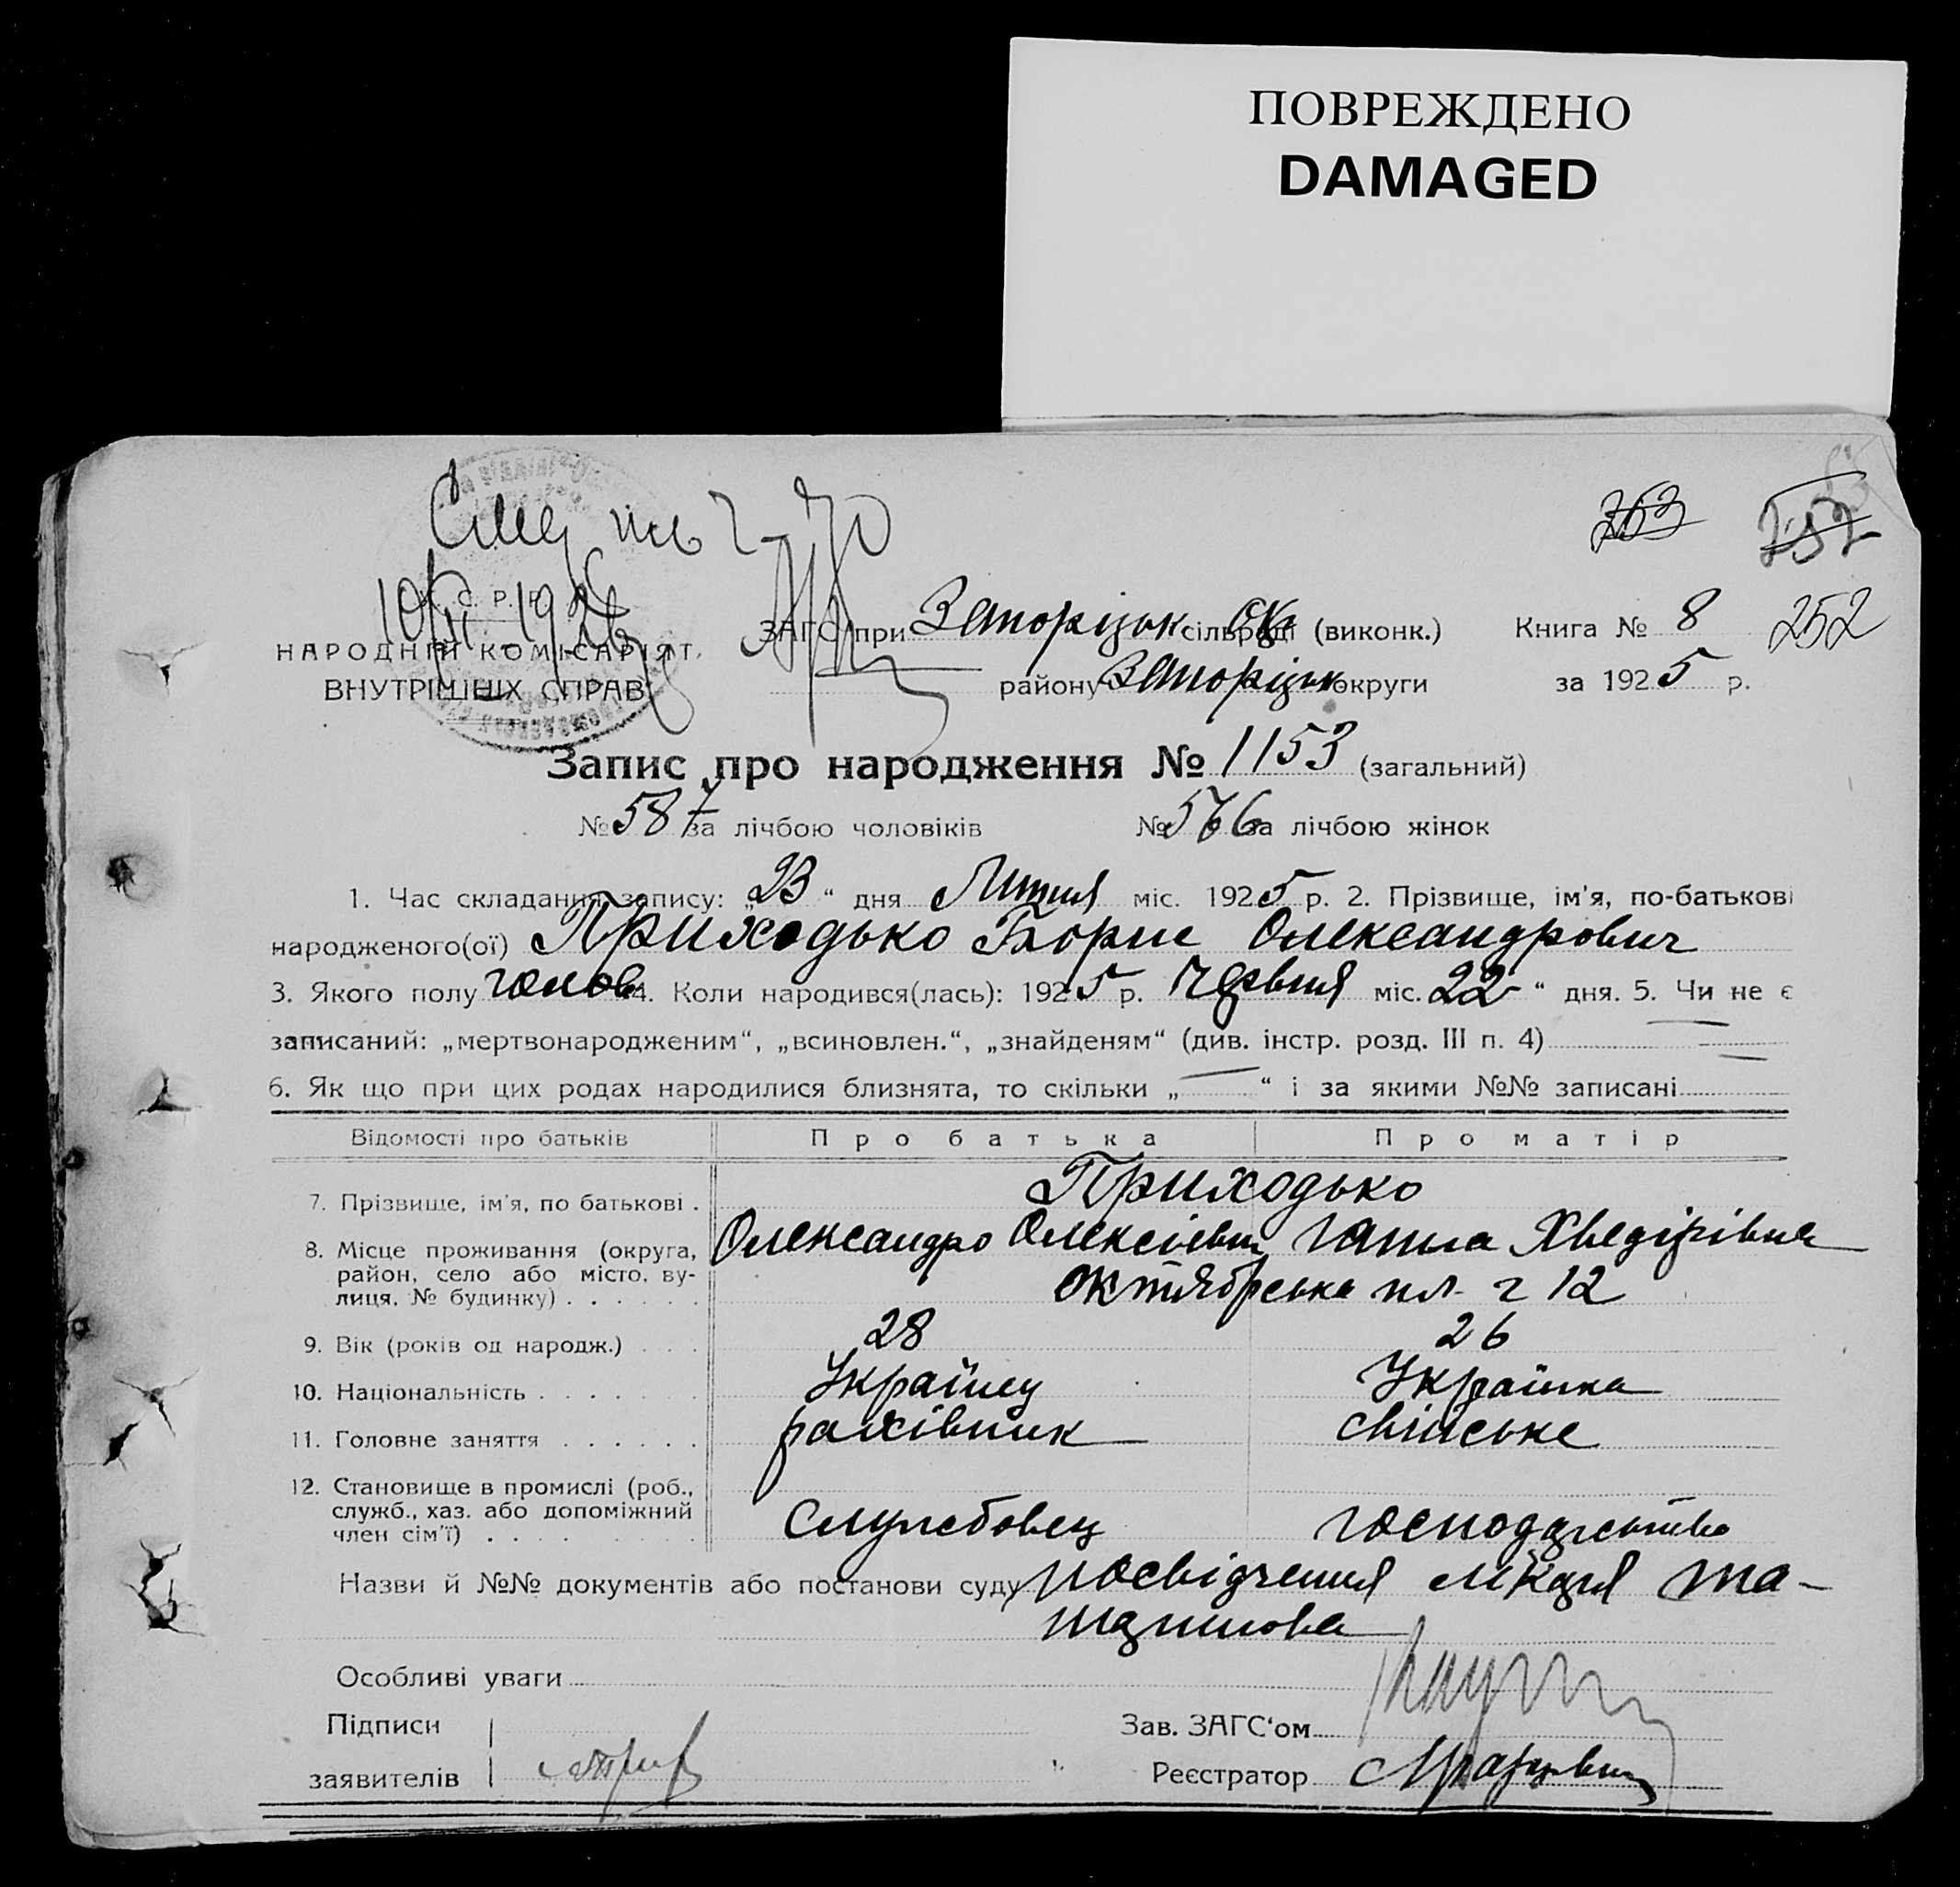 ПОВРЕЖДЕНО
DAMAGED
253 252
10/VI 1926
С. Р. Р.
ЗАГС при Запоріцьк сільраді (виконк.) Книга № 8 252
НАРОДНІЙ КОМІСАРІЯТ
ВНУТРІШНІХ СПРАВ
району Запоріцьк округи за 1925 р.
Запис про народження № 1153 (загальний)
№ 587 за лічбою чоловіків № 566 за лічбою жінок
1. Час складання запису: „23“ дня Липня міс. 1925 р. 2. Прізвище, ім'я, по-батькові
народженого(ої) Приходько Борис Олександрович
3. Якого полу чолов. 4. Коли народився(лась): 1925 р. Червня міс. 22 “ дня. 5. Чи не є
записаний: „мертвонародженим“, „всиновлен.“, „знайденям“ (див. інстр. розд. III п. 4)
6. Як що при цих родах народилися близнята, то скільки „ — “ і за якими №№ записані
Відомості про батьків Про батька Про матір
7. Прізвище, ім'я, по батькові . Приходько
Олександро Олексієвич Ганна Хведірівна
8. Місце проживання (округа,
район, село або місто, ву-
лиця, № будинку) . . . . . . Октябрська пл. ч 12
9. Вік (років од народж.) . . . 28 26
10. Національність . . . . . . . Українец Українка
11. Головне заняття . . . . . . рахівник хвійське
12. Становище в промислі (роб.,
служб., хаз. або допоміжний
член сім'ї) . . . . Службовец господарство
Назви й №№ документів або постанови суду посвідчення лікаря
Особливі уваги
Підписи
Зав. ЗАГС‘ом
заявителів
Реєстратор